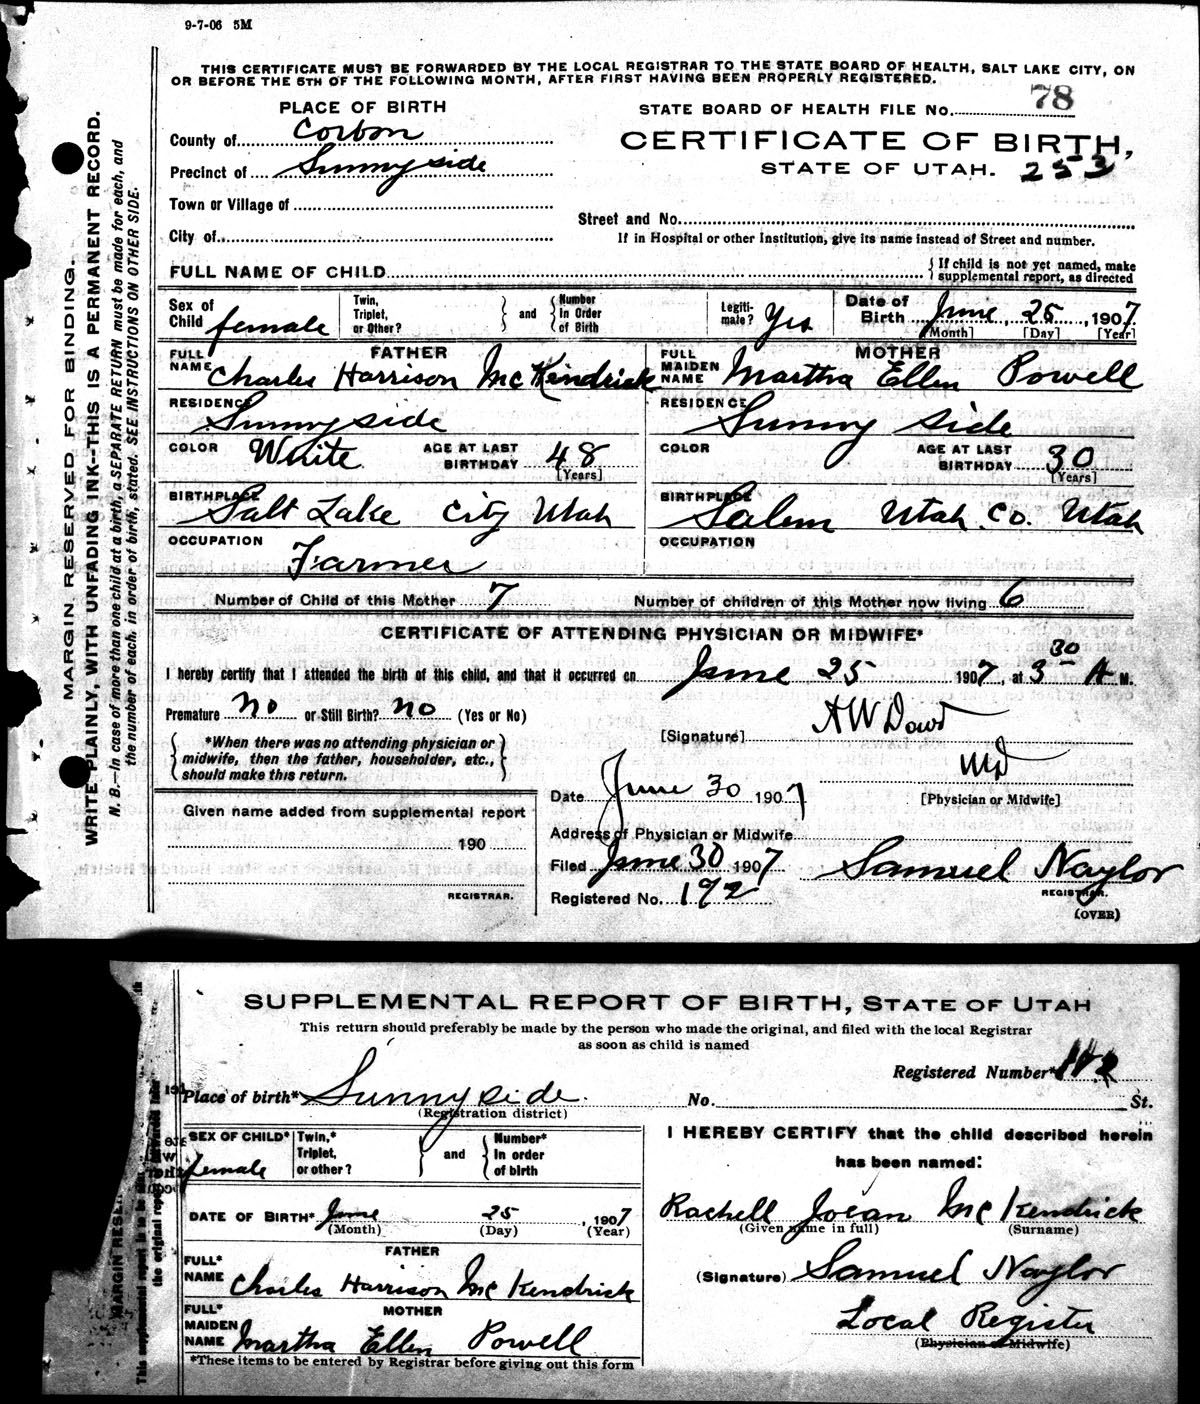 9-7-06 5M
THIS CERTIFICATE MUST BE FORWARDED BY THE LOCAL REGISTRAR TO THE STATE BOARD OF HEALTH, SALT LAKE CITY, ON
OR BEFORE THE 5TH OF THE FOLLOWING MONTH, AFTER FIRST HAVING BEEN PROPERLY REGISTERED.
MARGIN RESERVED FOR BINDING.
WRITE PLAINLY, WITH UNFADING INK--THIS IS A PERMANENT RECORD.
N. B.—In case of more than one child at a birth, a SEPARATE RETURN must be made for each, and
the number of each, in order of birth, stated. SEE INSTRUCTIONS ON OTHER SIDE.
PLACE OF BIRTH
STATE BOARD OF HEALTH FILE No. 78
County of Corbon
CERTIFICATE OF BIRTH,
Precinct of Sunnyside
STATE OF UTAH. 253
Town or Village of
Street and No.
City of
If in Hospital or other Institution, give its name instead of Street and number.
FULL NAME OF CHILD
If child is not yet named, make
supplemental report, as directed
Sex of Child female
Twin, Triplet, or Other?
and
Number In Order of Birth
Legiti-mate? Yes
Date of Birth June, 25, 1907
[Month] [Day] [Year]
FATHER
FULL NAME Charles Harrison McKendrick
MOTHER
FULL MAIDEN NAME Martha Ellen Powell
RESIDENCE Sunnyside
RESIDENCE Sunny side
COLOR White AGE AT LAST BIRTHDAY 48 [Years]
COLOR AGE AT LAST BIRTHDAY 30 [Years]
BIRTHPLACE Salt Lake City Utah
BIRTHPLACE Salem Utah Co. Utah
OCCUPATION Farmer
OCCUPATION
Number of Child of this Mother 7 Number of children of this Mother now living 6
CERTIFICATE OF ATTENDING PHYSICIAN OR MIDWIFE*
I hereby certify that I attended the birth of this child, and that it occurred on June 25 1907, at 3 30 A M.
Premature no or Still Birth? no (Yes or No)
[Signature] A W Dowd
*When there was no attending physician or
midwife, then the father, householder, etc.,
should make this return.
MD
[Physician or Midwife]
Date June 30 1907
Given name added from supplemental report
190
REGISTRAR.
Address of Physician or Midwife
Filed June 30 1907 Samuel Naylor
REGISTRAR.
Registered No. 192
(OVER)
SUPPLEMENTAL REPORT OF BIRTH, STATE OF UTAH
This return should preferably be made by the person who made the original, and filed with the local Registrar
as soon as child is named
Registered Number*
Place of birth* Sunnyside No. St.
(Registration district)
SEX OF CHILD* female
Twin,* Triplet, or other?
and
Number* In order of birth
DATE OF BIRTH* June 25, 1907
(Month) (Day) (Year)
FATHER
FULL* NAME Charles Harrison McKendrick
MOTHER
FULL* MAIDEN NAME Martha Ellen Powell
*These items to be entered by Registrar before giving out this form
I HEREBY CERTIFY that the child described herein
has been named:
Rachell Joean McKendrick
(Given name in full) (Surname)
(Signature) Samuel Naylor
Local Register
(Physician or Midwife)
MARGIN RESER
This supplemental report is to be
the original rep